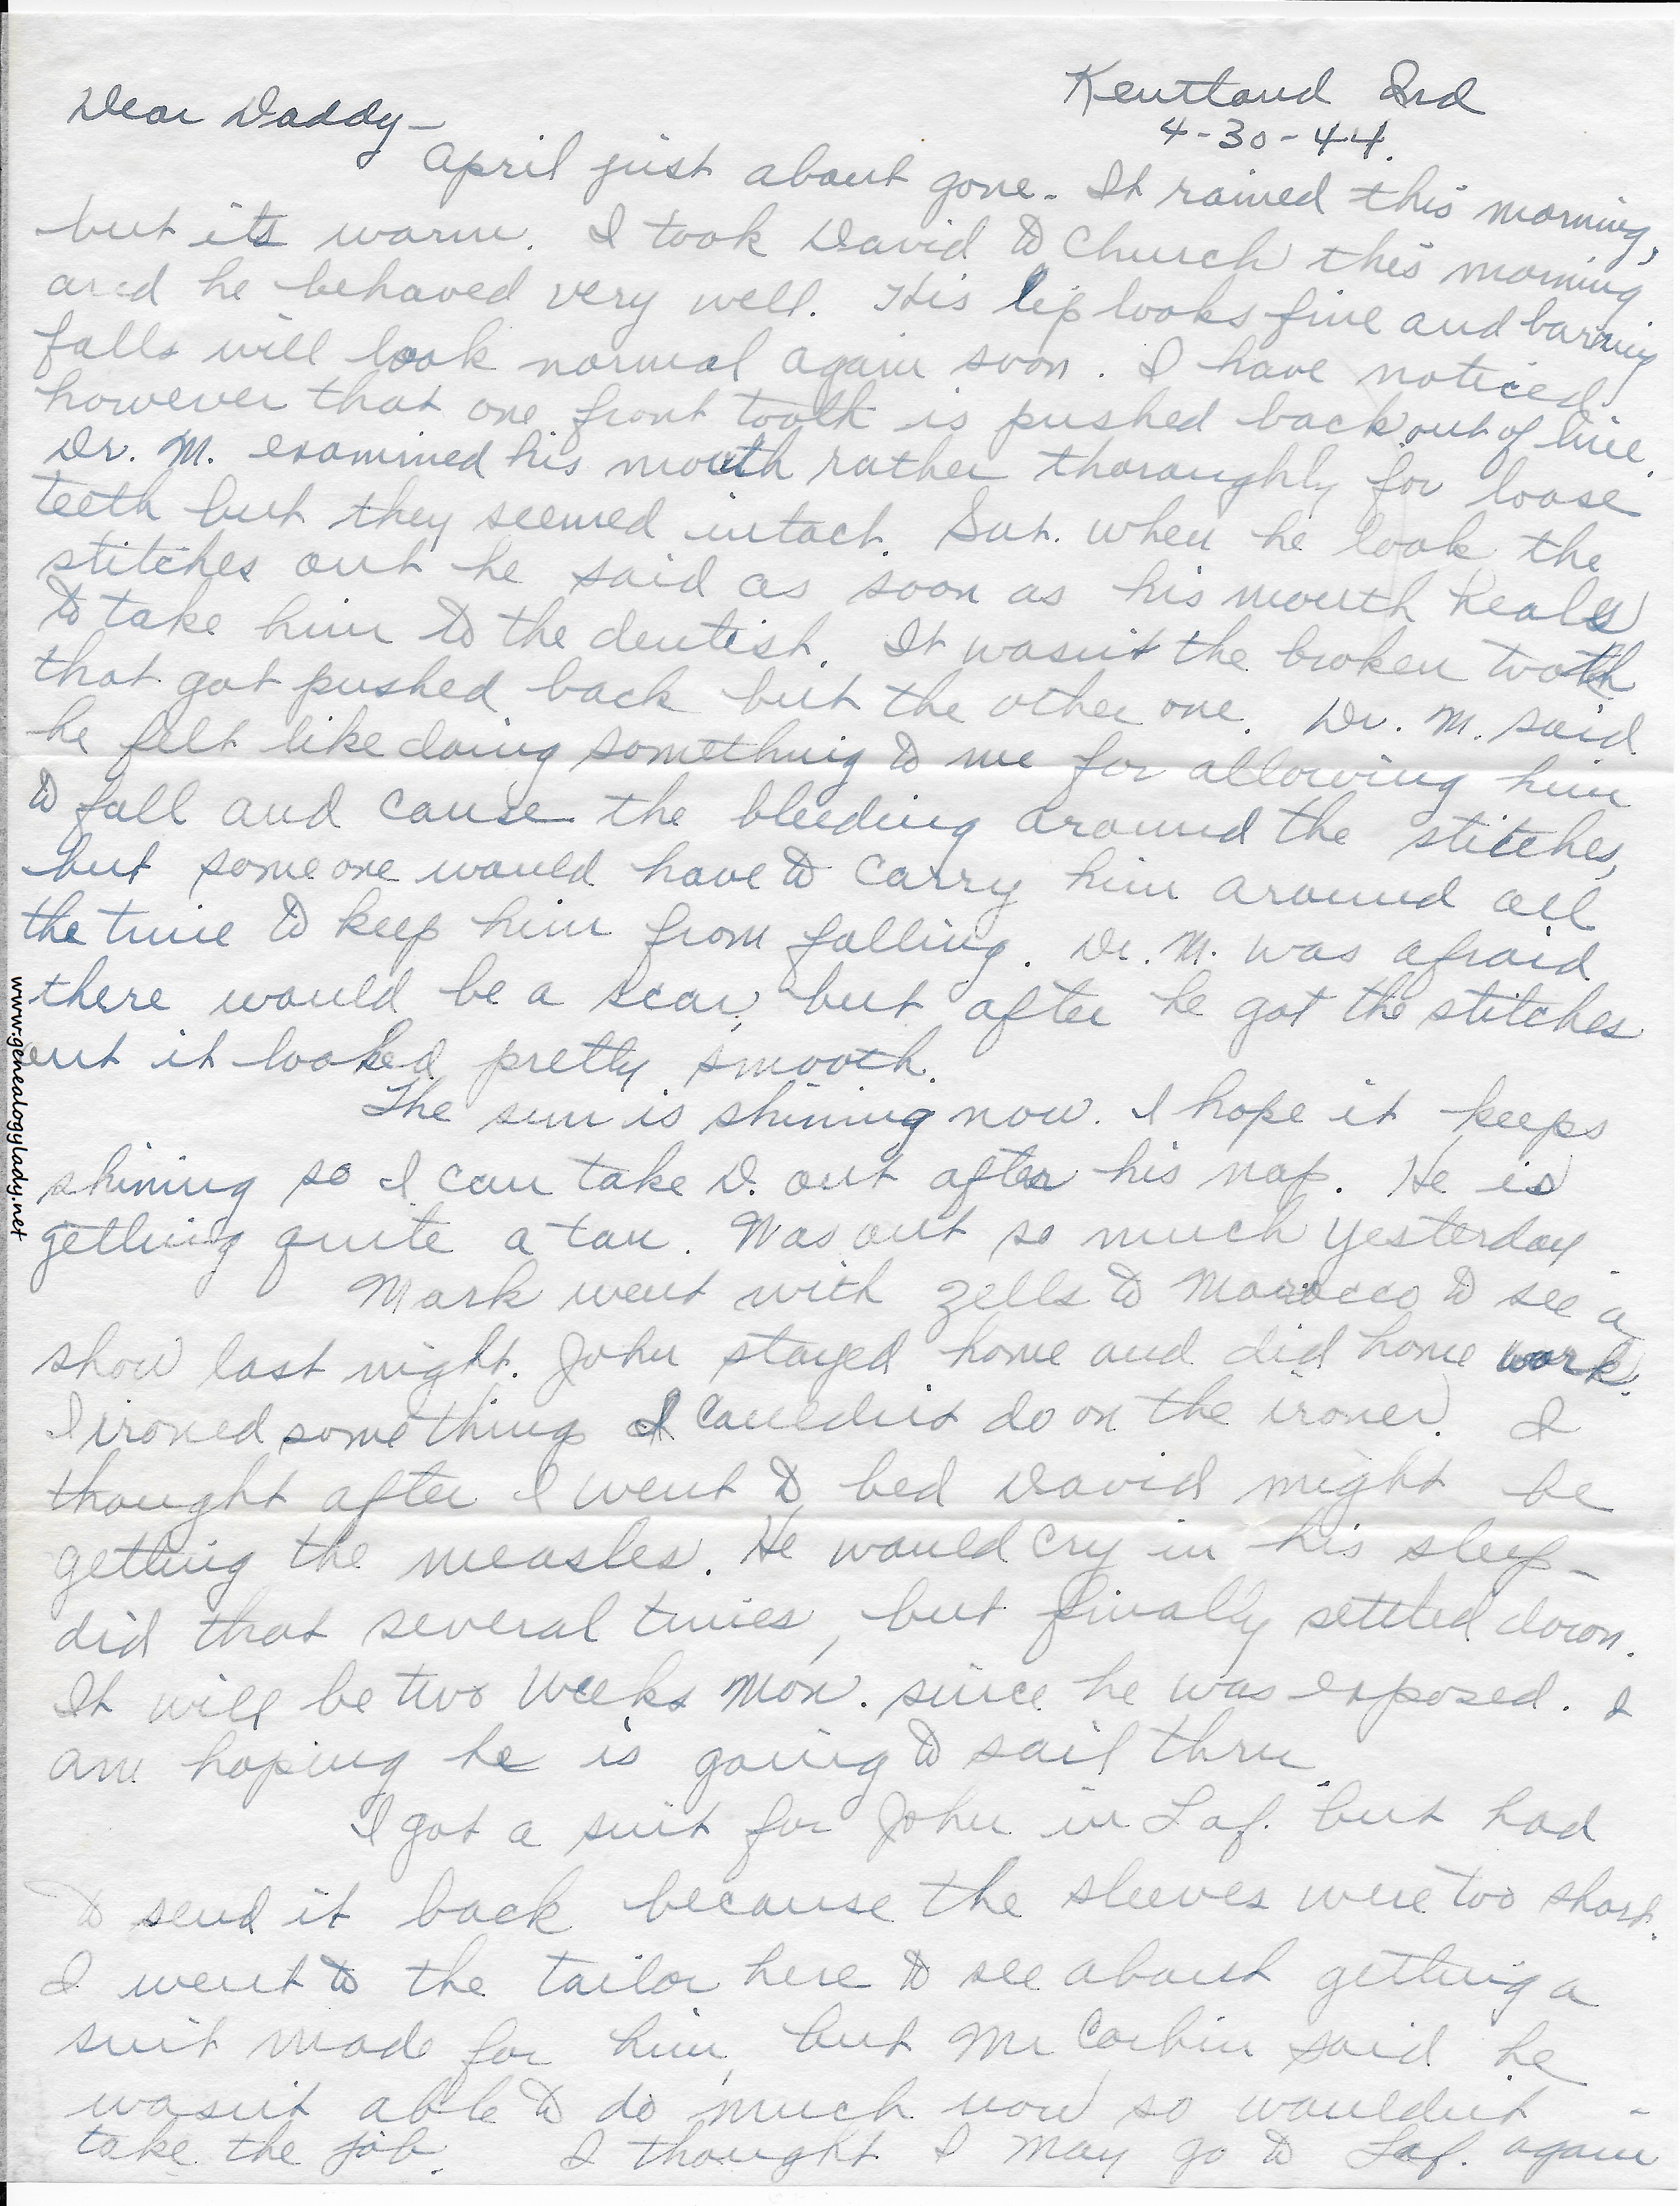 Kentland Ind
4-30-44.
Dear Daddy-
April just about gone. It rained this morning,
but its warm. I took David to Church this morning
and he behaved very well. His lip looks fine and barring
falls will look normal again soon. I have noticed
however that one front tooth is pushed back out of line.
Dr. M. examined his mouth rather thoroughly for loose
teeth but they seemed intact. Sat. when he took the
stitches out he said as soon as his mouth heals
to take him to the dentist. It wasn't the broken tooth
that got pushed back but the other one. Dr. M. said
he felt like doing something to me for allowing him
to fall and cause the bleeding around the stitches,
but someone would have to carry him around all
the time to keep him from falling. Dr. M. was afraid
there would be a scar, but after he got the stitches
out it looked pretty smooth.
The sun is shining now. I hope it keeps
shining so I can take D. out after his nap. He is
getting quite a tan. Was out so much yesterday
Mark went with Zells to Morocco to see a
show last night. John stayed home and did home work.
I ironed some things I couldn't do on the ironer. I
thought after I went to bed David might be
getting the measles. He would cry in his sleep-
did that several times, but finally settled down.
It will be two weeks Mon. since he was exposed. I
am hoping he is going to sail thru.
I got a suit for John in Laf. but had
to send it back because the sleeves were too short.
I went to the tailor here to see about getting a
suit made for him, but Mr Corbin said he
wasn't able to do much now so wouldn't -
take the job. I thought I may go to Laf. again
www.genealogylady.net